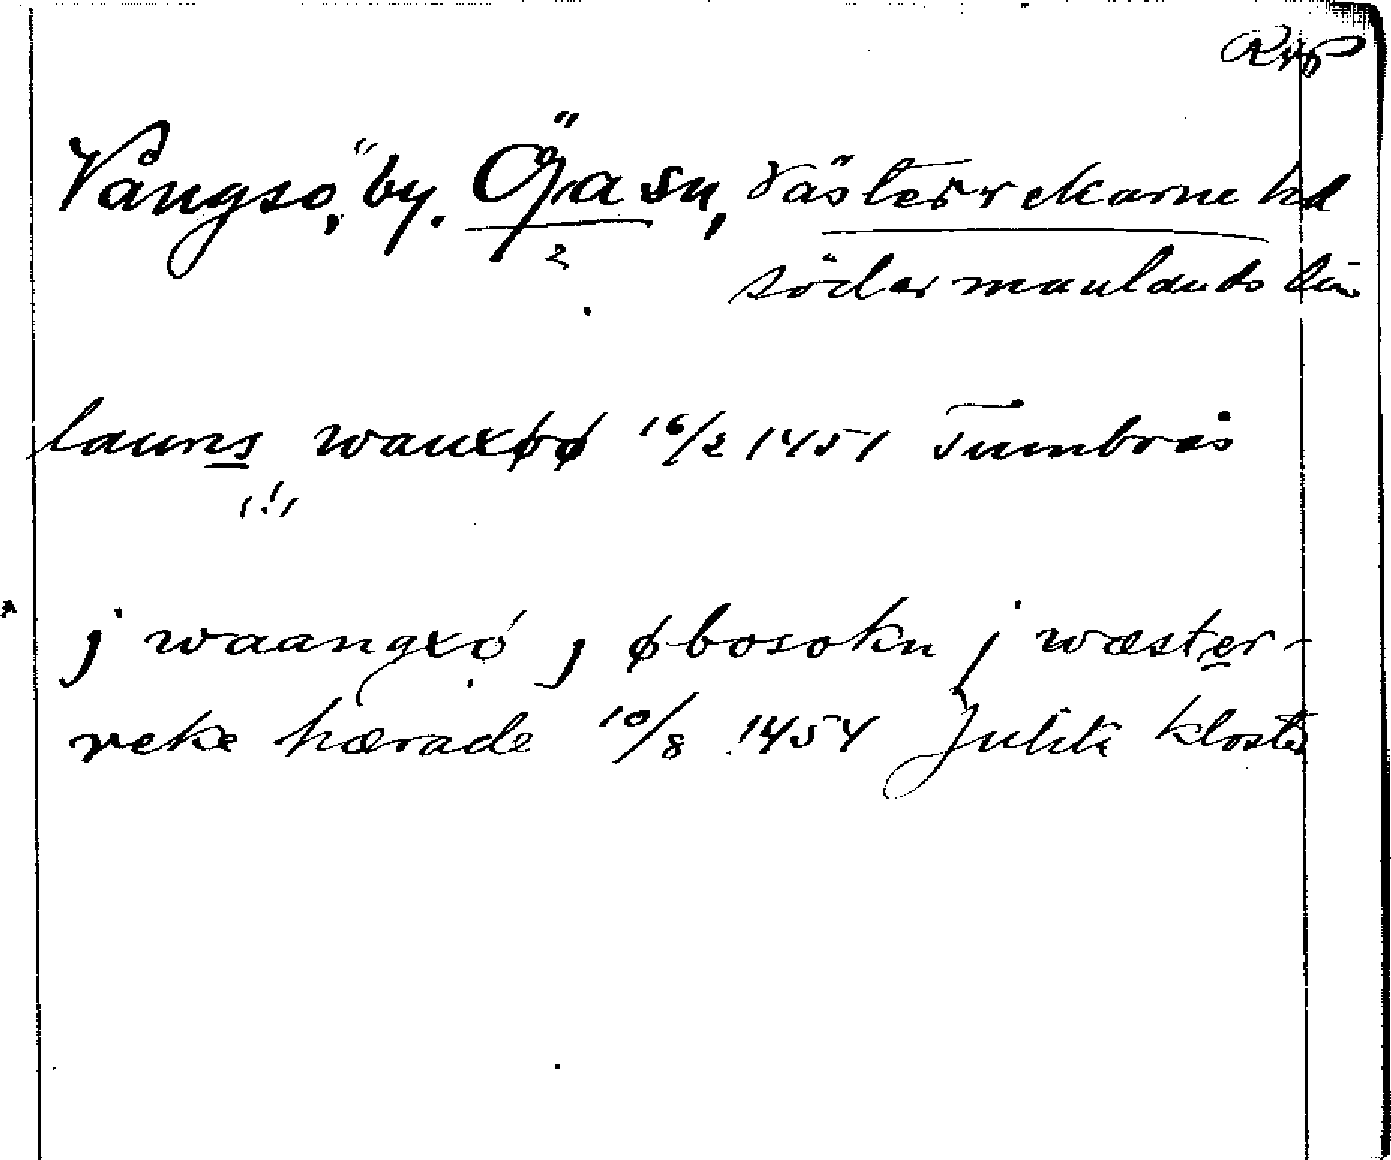 Rvp
Vångsö, by. Öja sn, Västerrekarne hd
2
södermanlands län
launs wanxøø 16/2 1451 Tumbrås
(!)
j waangxø j øbosokn j wæster-
reke hærade 10/8 1454 Julita kloster